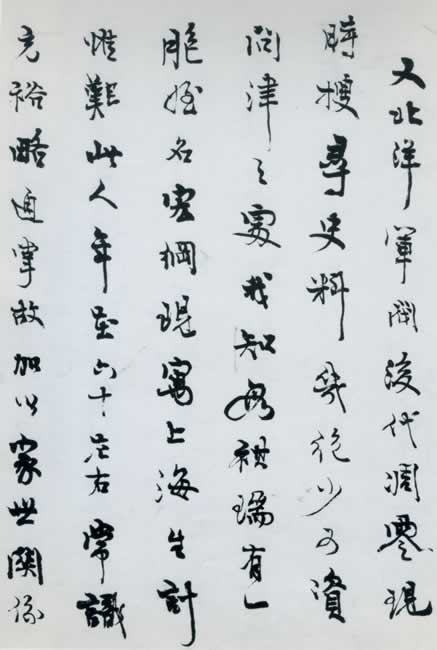 又北洋軍閥後代凋零現
時搜尋史料幾絕少可資
問津之處我知段祺瑞有一
胞姪名宏綱現寓上海生計
惟艱此人年在六十左右常識
充裕略通掌故加以家世關係